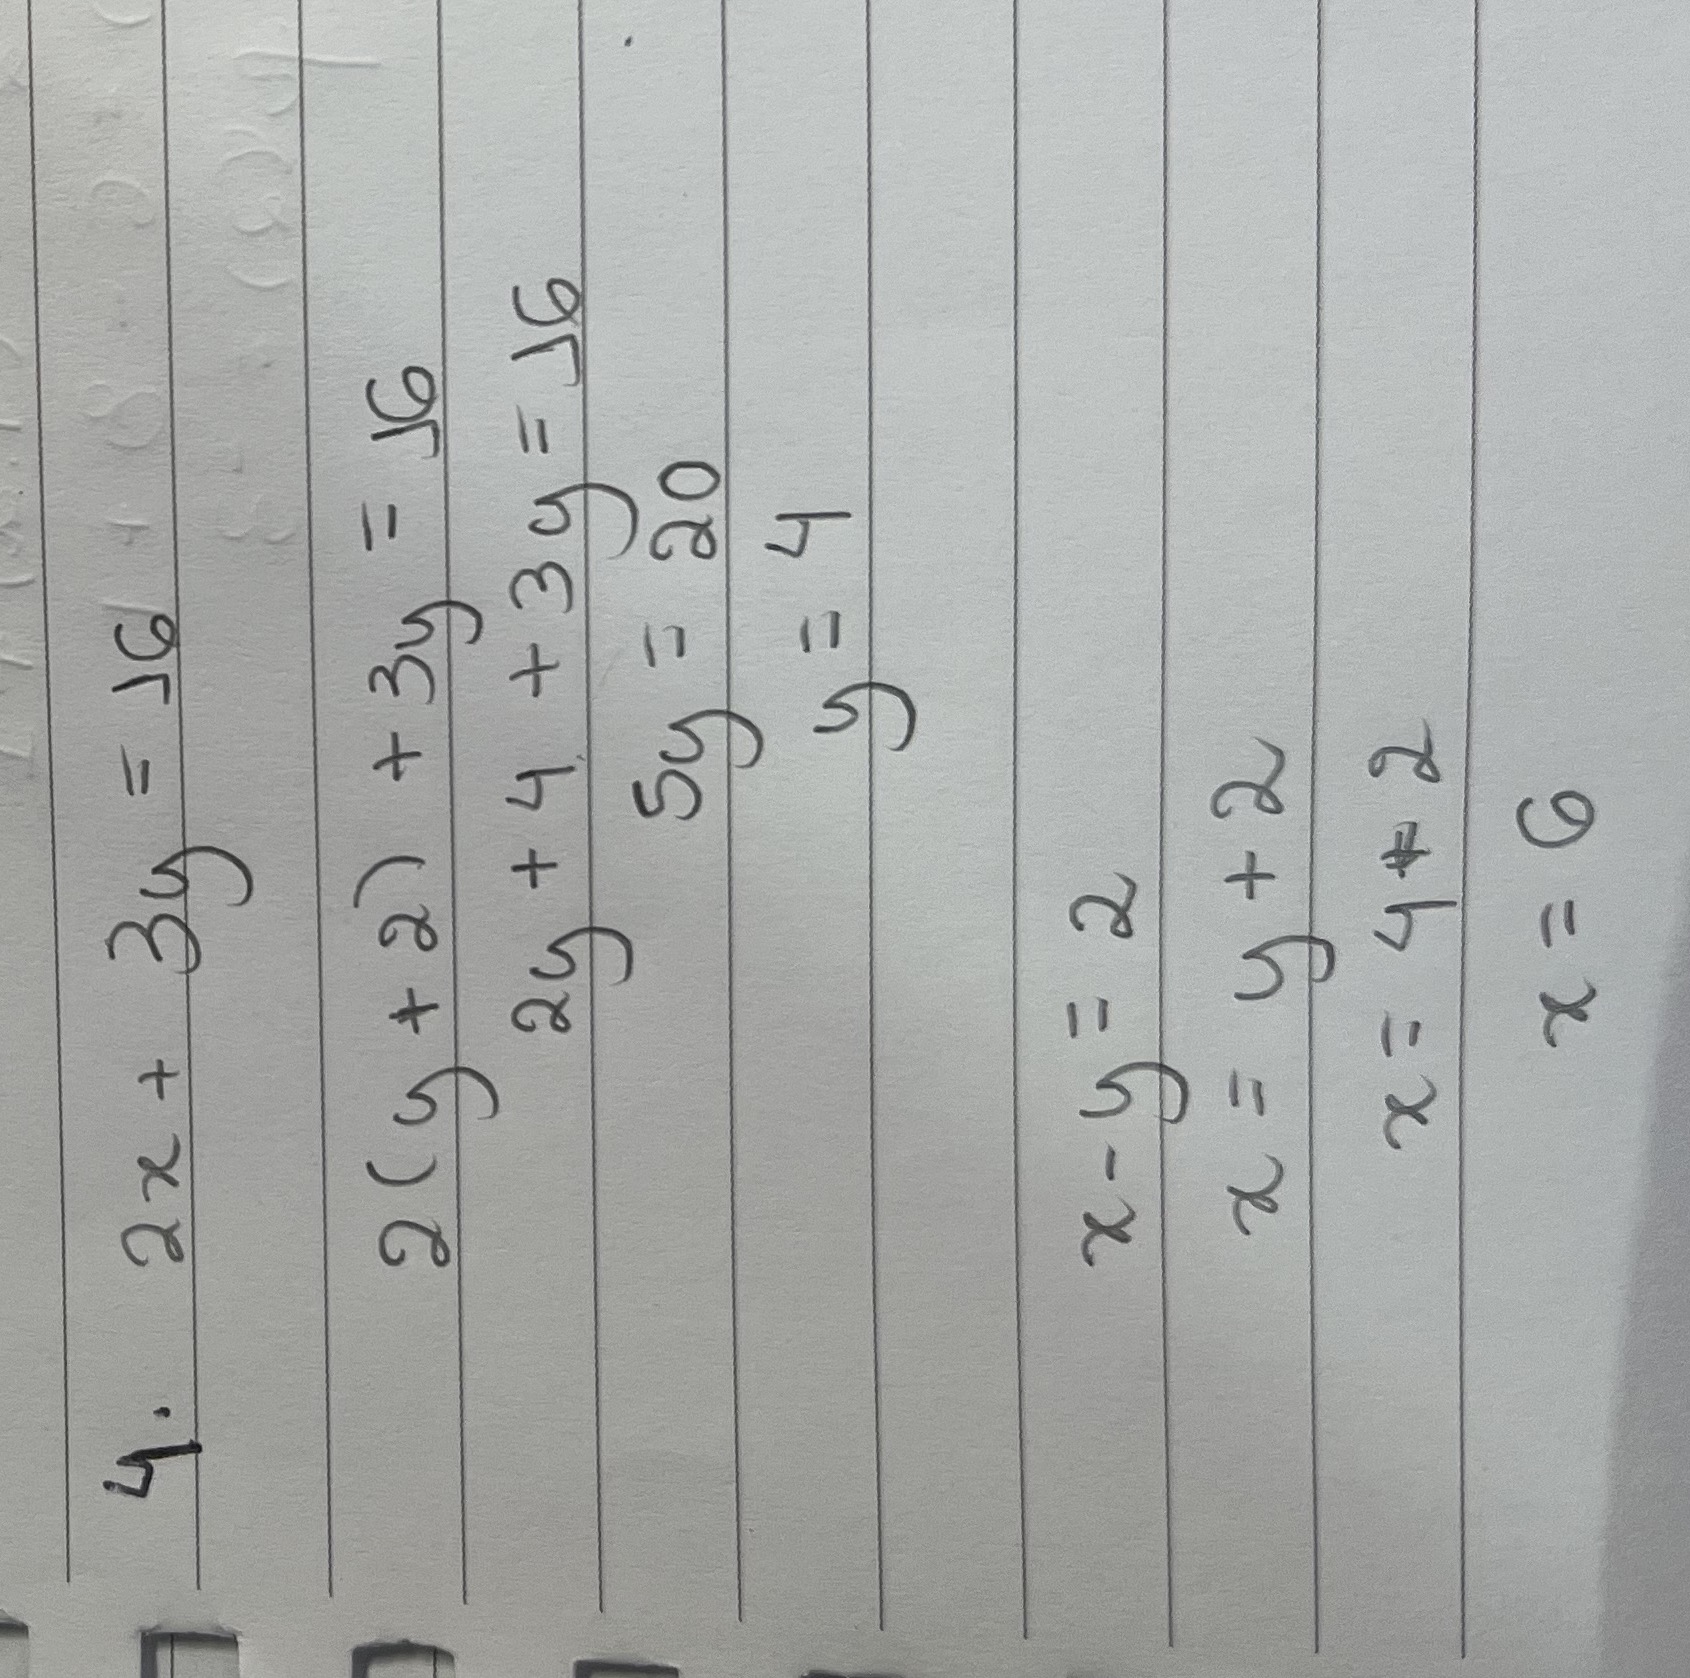 4. 2x + 3y = 16
2(y + 2) + 3y = 16
2y + 4 + 3y = 16
5y = 20
y = 4
x - y = 2
x = y + 2
x = 4 + 2
x = 6